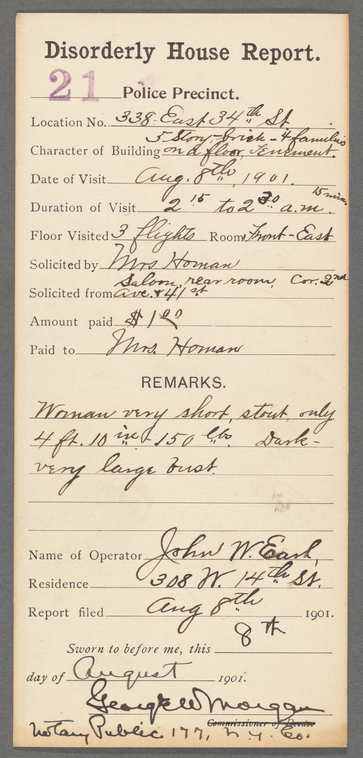 Disorderly House Report.
21 Police Precinct.
Location No. 338 East 34th St
5 Story-brick-4 families
Character of Building on a floor, Tenement.
Date of Visit Aug. 8th, 1901.
15 mins
Duration of Visit 2 15 to 2 30 a.m.
Floor Visited 3 flights Room Front-East
Solicited by Mrs Homan
Saloon, rear room, Cor. 2nd
Solicited from Ave. & 41st
Amount paid $1 00
Paid to Mrs. Homan
REMARKS.
Woman very short, stout, only
4 ft. 10 in - 150 lbs. Dark-
very large bust.
Name of Operator John W. Earl,
Residence 308 W. 14th St.
Report filed Aug 8th 1901.
Sworn to before me, this 8th
day of August 1901.
George W Morgan
Commissioner of Deeds
Notary Public 177, N.Y. Co.